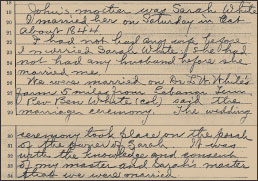 John's mother was Sarah White
I married her on Saturday in Oct
about 1844.
I had not had any wife before
I married Sarah White & she had
not had any husband before she
married me.
We were married on Dr. White's
farm 5 miles from Lebanon Tenn.
Rev Ben White (Col) said the
marriage ceremony. The wedding
ceremony took place on the porch
of the owner of Sarah. It was
with the knowledge and consent
of my master and Sarah's master
that we were married